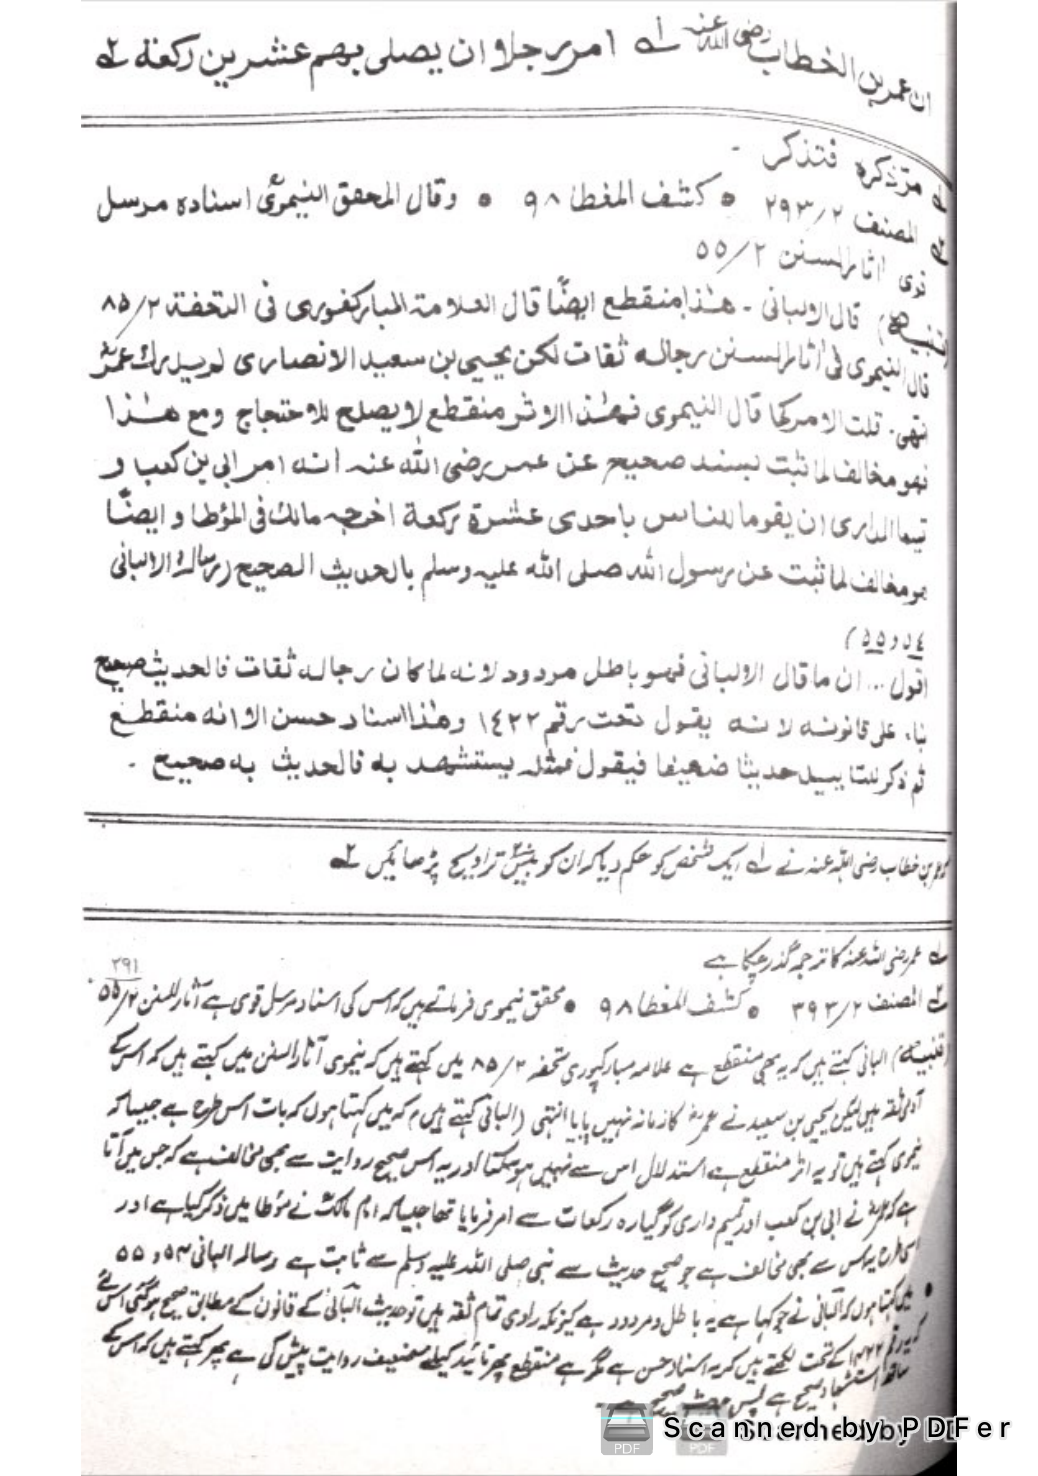 ان عمر بن الخطاب رضی الله عنه لے امر رجلا و ان یصلی بهم عشرین رکعة ٢ے
لے مرّ ذکره فتذکر -
٢ے المصنف ٢/٢٩٣ • کشف المغطا ٩٨ • وقال المحقق النیمویؒ اسناده مرسل
قوی اثار السنن ٢/٥٥
(تنبیه) قال الالبانی - هٰذا منقطع ایضًا قال العلامة المبارکفوری فی التحفة ٢/٨٥
قال النیموی فی اثار السنن رجاله ثقات لکن یحیی بن سعید الانصاری لم یدرک عمرؓ
نتهی. قلت الامر کما قال النیموی فهٰذا الاثر منقطع لا یصلح للاحتجاج ومع هٰذا
فهو مخالف لما ثبت بسند صحیح عن عمر رضی الله عنه انه امر ابی بن کعب و
تیما الداری ان یقوما للناس باحدی عشرة رکعة اخرجه مالک فی المؤطا و ایضًا
هو مخالف لما ثبت عن رسول الله صلی الله علیه وسلم بالحدیث الصحیح (رسالة الالبانی
٥٤ و ٥٥)
اقول... ان ما قال الالبانی فهو باطل مردود لانه لما کان رجاله ثقات فالحدیث صحیح
بناء علی قانونه لانه یقول تحت رقم ١٤٢٢ وهٰذا اسناد حسن الا انه منقطع
ثم ذکر للتایید حدیثا ضعیفا فیقول فمثله یستشهد به فالحدیث به صحیح .
عمر بن خطاب رضی اللہ عنہ نے لے ایک شخص کو حکم دیا کہ ان کو بیسؔ تراویح پڑھائیں ٢ے
لے عمر رضی اللہ عنہ کا ترجمہ گذر چکا ہے
٢٩١
٢ے المصنف ٢/٣٩٣ • کشف المغطا ٩٨ • محقق نیموی فرماتے ہیں کہ اس کی اسناد مرسل قوی ہے آثار السنن ٢/٥٥
(تنبیہ) البانی کہتے ہیں کہ یہ بھی منقطع ہے علامہ مبارکپوری تحفہ ٢/٨٥ میں کہتے ہیں کہ نیموی آثار السنن میں کہتے ہیں کہ اس کے
آدمی ثقہ ہیں لیکن یحیی بن سعید نے عمرؓ کا زمانہ نہیں پایا انتہی (البانی کہتے ہیں) کہ میں کہتا ہوں کہ بات اس طرح ہے جیسا کہ
نیموی کہتے ہیں تو یہ اثر منقطع ہے استدلال اس سے نہیں ہو سکتا اور یہ اس صحیح روایت سے بھی مخالف ہے کہ جس میں آتا
ہے کہ عمرؓ نے ابی بن کعب اور تمیم داری کو گیارہ رکعات سے امر فرمایا تھا جیسا کہ امام مالکؒ نے مؤطا میں ذکر کیا ہے اور
اسی طرح یہ اس سے بھی مخالف ہے جو صحیح حدیث سے نبی صلی اللہ علیہ وسلم سے ثابت ہے رسالہ البانی ٥٤ و ٥٥
• میں کہتا ہوں کہ البانی نے جو کہا ہے یہ باطل و مردود ہے کیونکہ راوی تمام ثقہ ہیں تو حدیث البانی کے قانون کے مطابق صحیح ہو گئی اس لئے
کہ یہ رقم ١٤٢٢ کے تحت لکھتے ہیں کہ یہ اسناد حسن ہے مگر ہے منقطع پھر تائید کیلئے ضعیف روایت پیش کی ہے پھر کہتے ہیں کہ اس کے
ساتھ استشہاد صحیح ہے پس حدیث صحیح ہے -
Scanned by PDFer